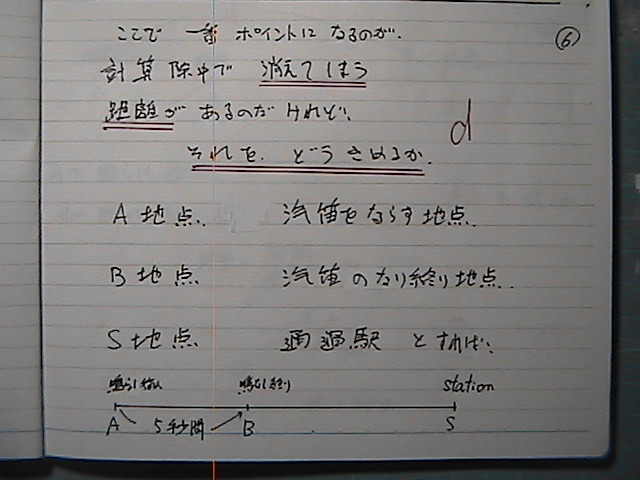 ここで 一番 ポイントに なるのが、
⑥
計算 除中で 消えてしまう
距離が あるのだ けれど、
d
それを、どう きめるか、
A 地点、 汽笛をならす地点、
B 地点 汽笛のなり終り地点、
S 地点、 通過駅 とすれば、
鳴らし 鳴らし終り station
A 5秒間 B S